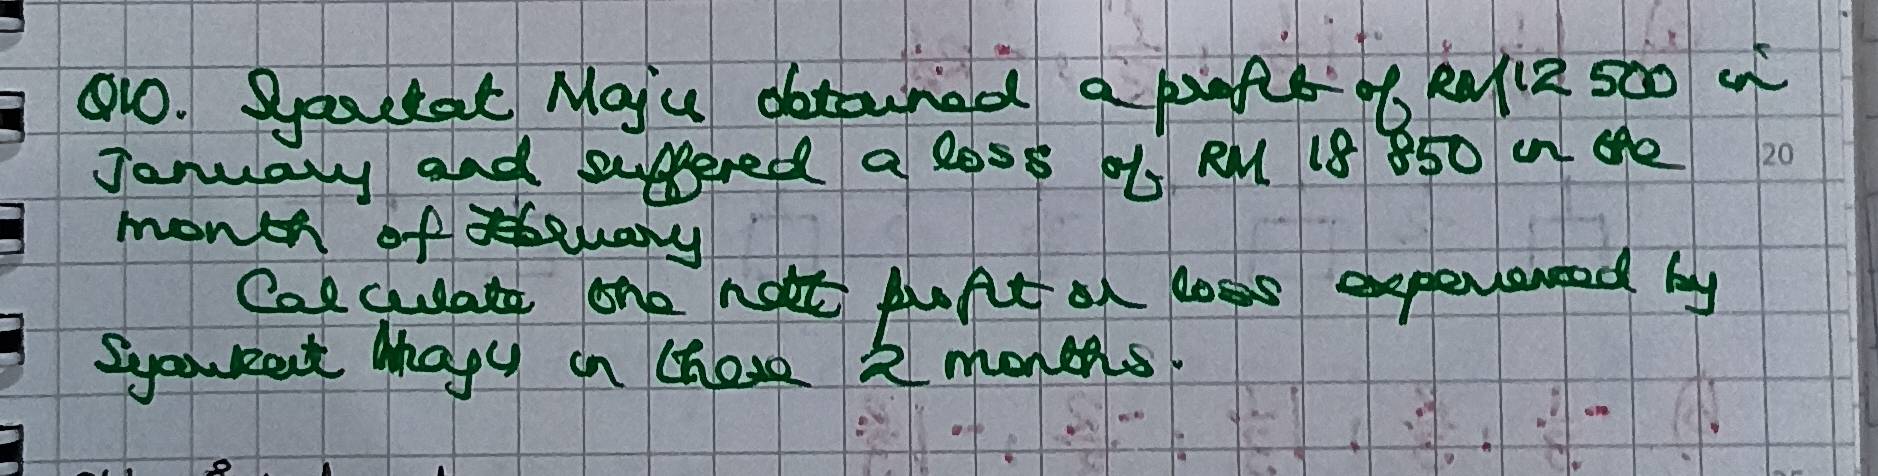 Q10. Syarikat Maju obtained a profit of RM12 500 in
January and suffered a loss of RM 18 850 in the
month of February
Calculate the nett profit or loss experienced by
Syarikat Maju in these 2 months.
20